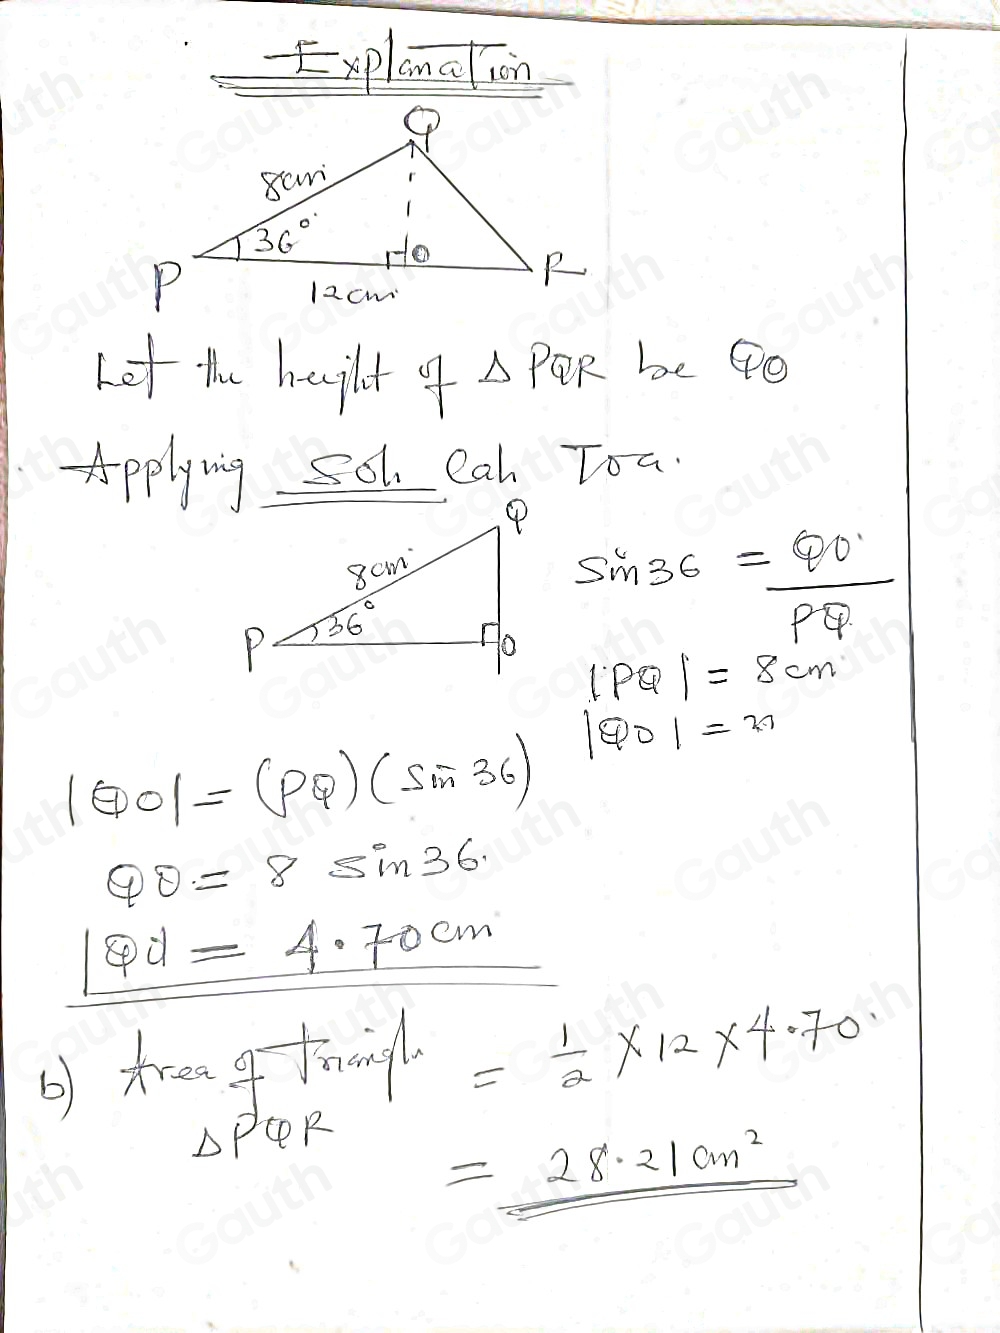 Explanation
Q
8cm
36°
O
P
R
12cm
Let the height of Δ PQR be QO
Applying Soh Cah Toa.
Q
8cm
36°
P
O
Sin36 = QO
PQ
|PQ| = 8cm
|QO| =
|QO| = (PQ)(Sin 36)
QO = 8 Sin36.
|QO| = 4.70cm
b) Area of Triangle = 1/2 × 12 × 4.70
ΔPQR
= 28.21cm²